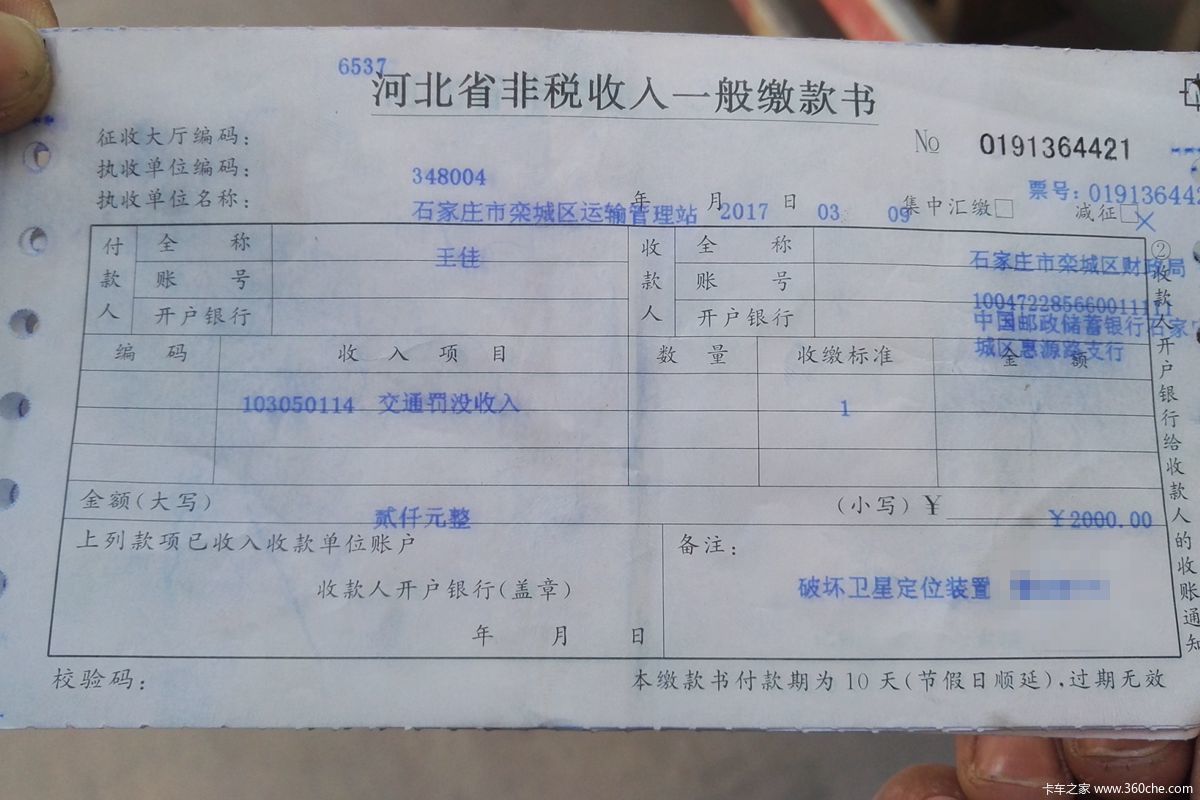 6537
河北省非税收入一般缴款书
征收大厅编码：
No 0191364421
执收单位编码： 348004
票号：019136442
执收单位名称： 石家庄市栾城区运输管理站 2017 年 03 月 09 日 集中汇缴□ 减征□
付款人 全称 王佳 收款人 全称 石家庄市栾城区财政局
账号 账号
开户银行 开户银行 中国邮政储蓄银行石家
城区惠源路支行
编码 收入项目 数量 收缴标准 金额
103050114 交通罚没收入 1
金额(大写) 贰仟元整 (小写)￥ ￥2000.00
上列款项已收入收款单位账户 备注：
收款人开户银行(盖章) 破坏卫星定位装置
年 月 日
②收款人开户银行给收款人的收账通知
校验码： 本缴款书付款期为10天(节假日顺延),过期无效
卡车之家 www.360che.com